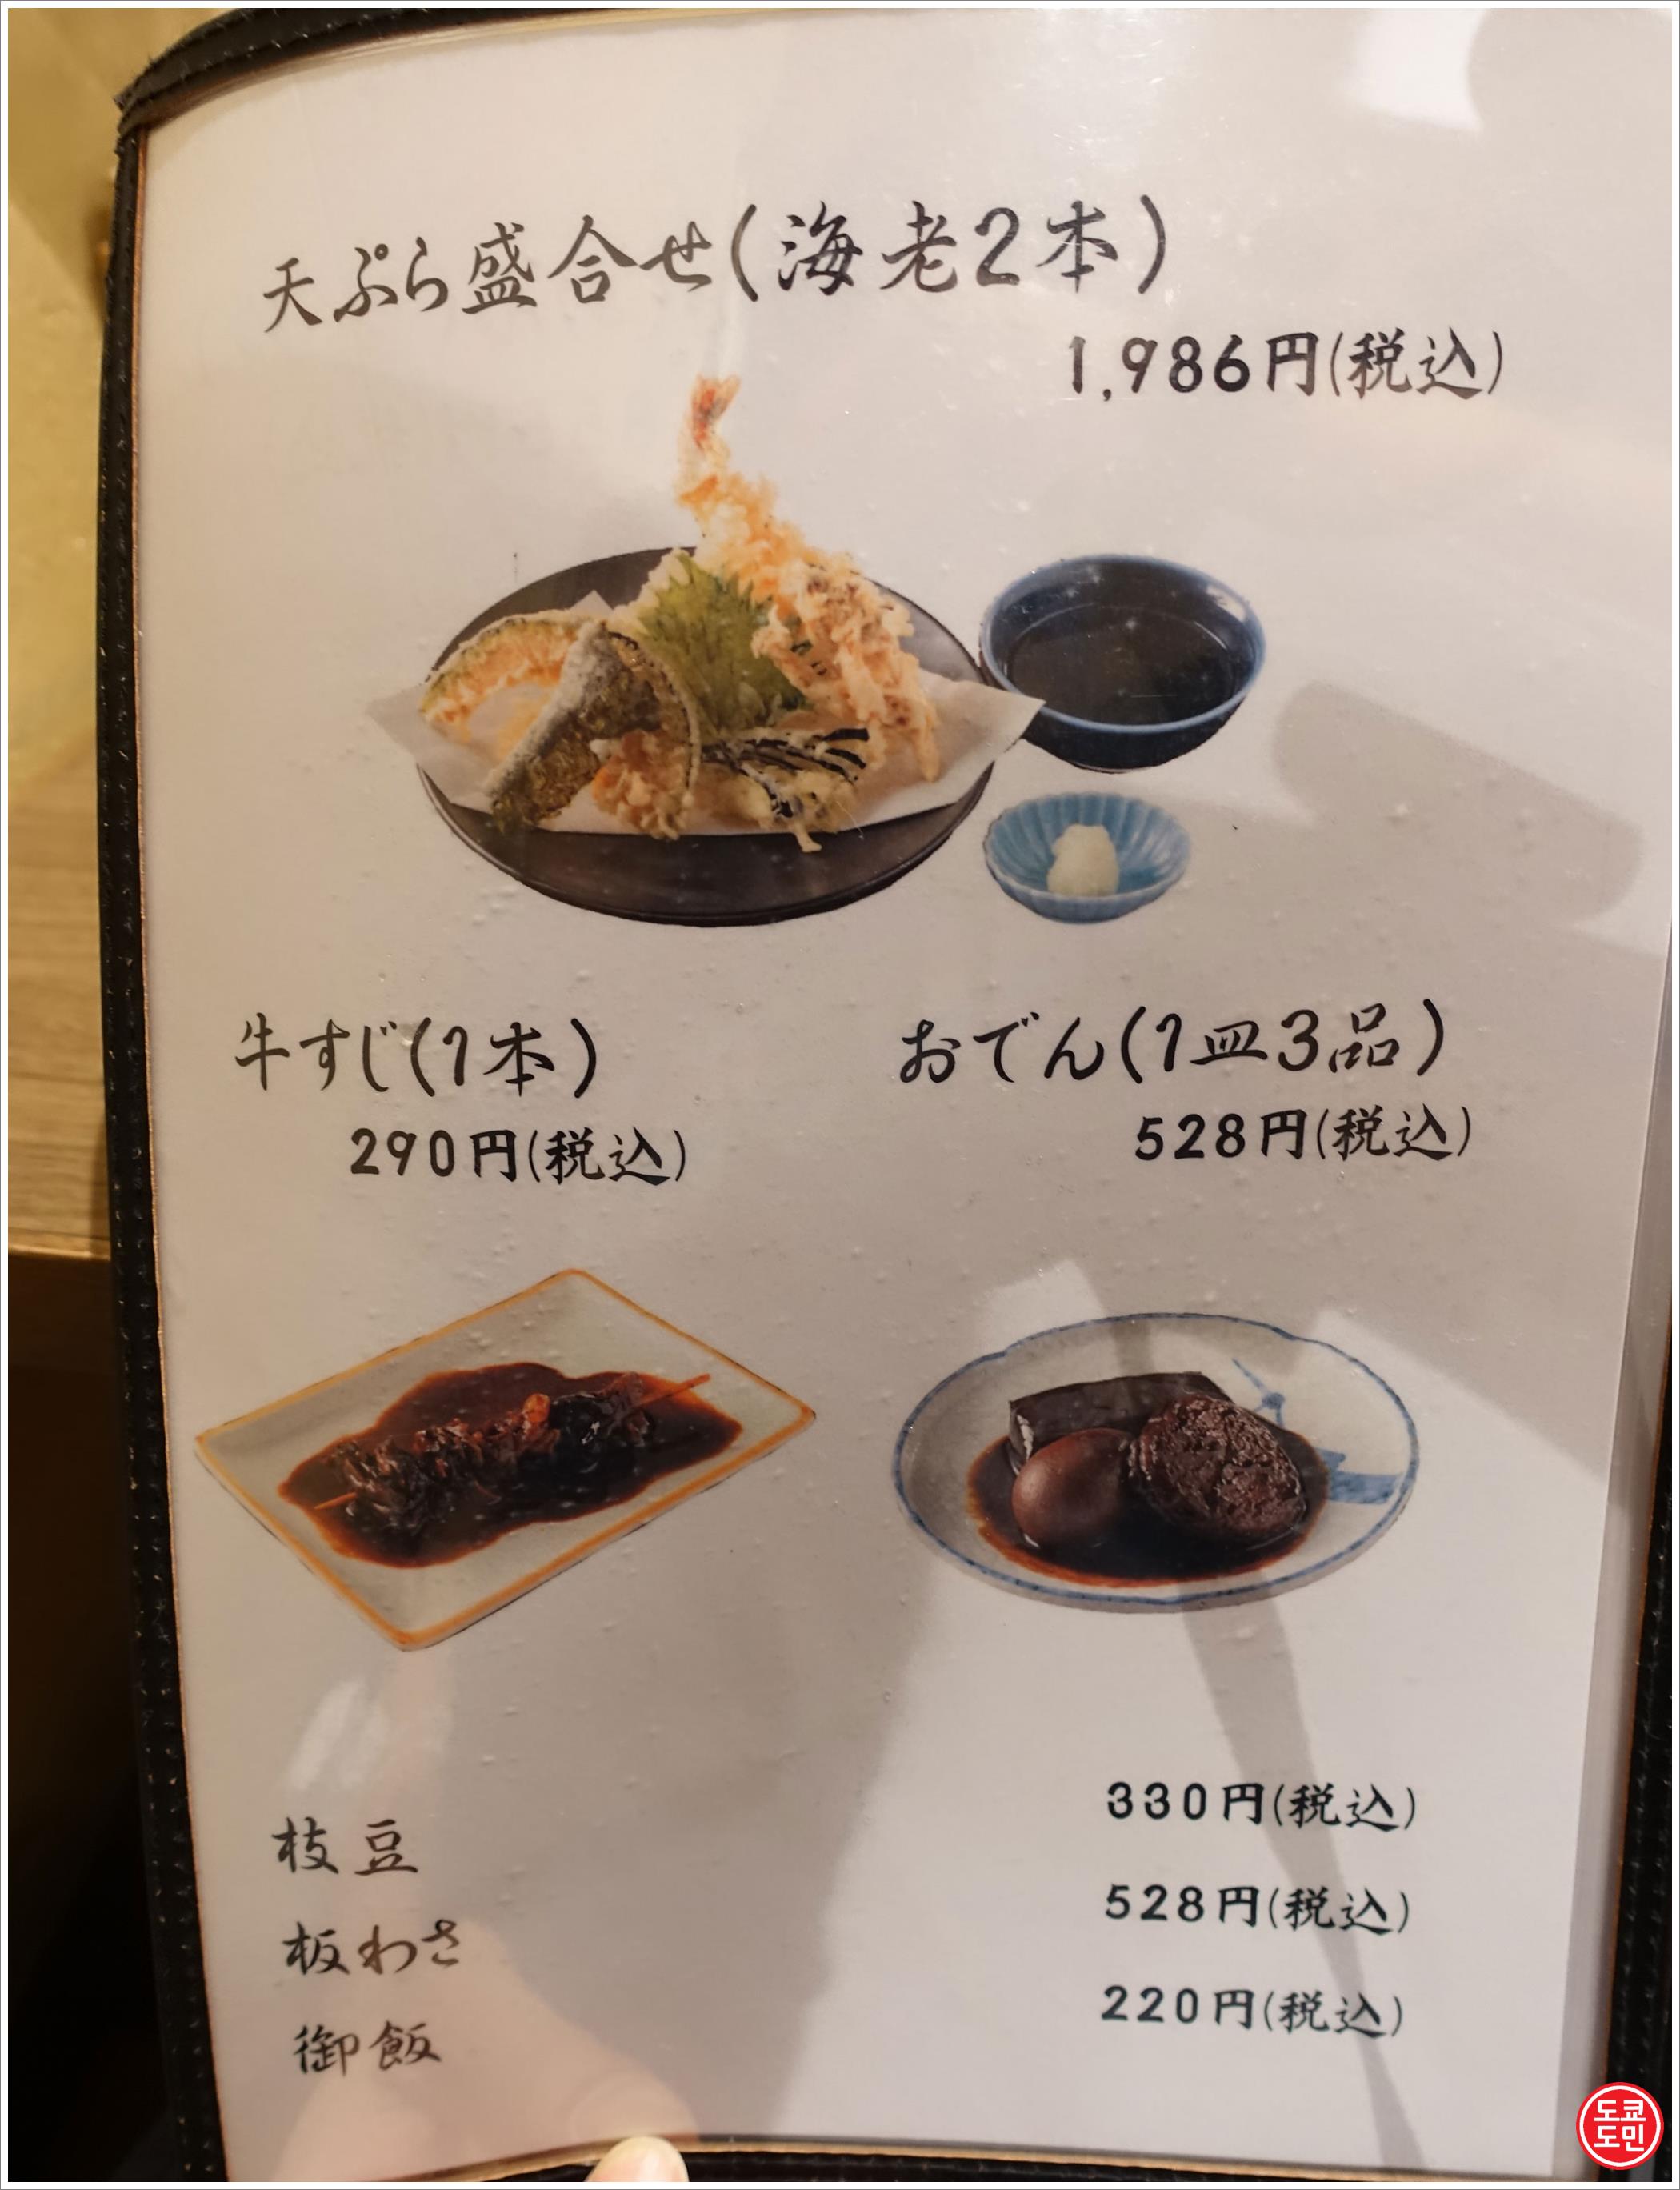 天ぷら盛合せ(海老2本)
1,986円(税込)
牛すじ(1本)
290円(税込)
おでん(1皿3品)
528円(税込)
枝豆
330円(税込)
板わさ
528円(税込)
御飯
220円(税込)
도쿄
도민